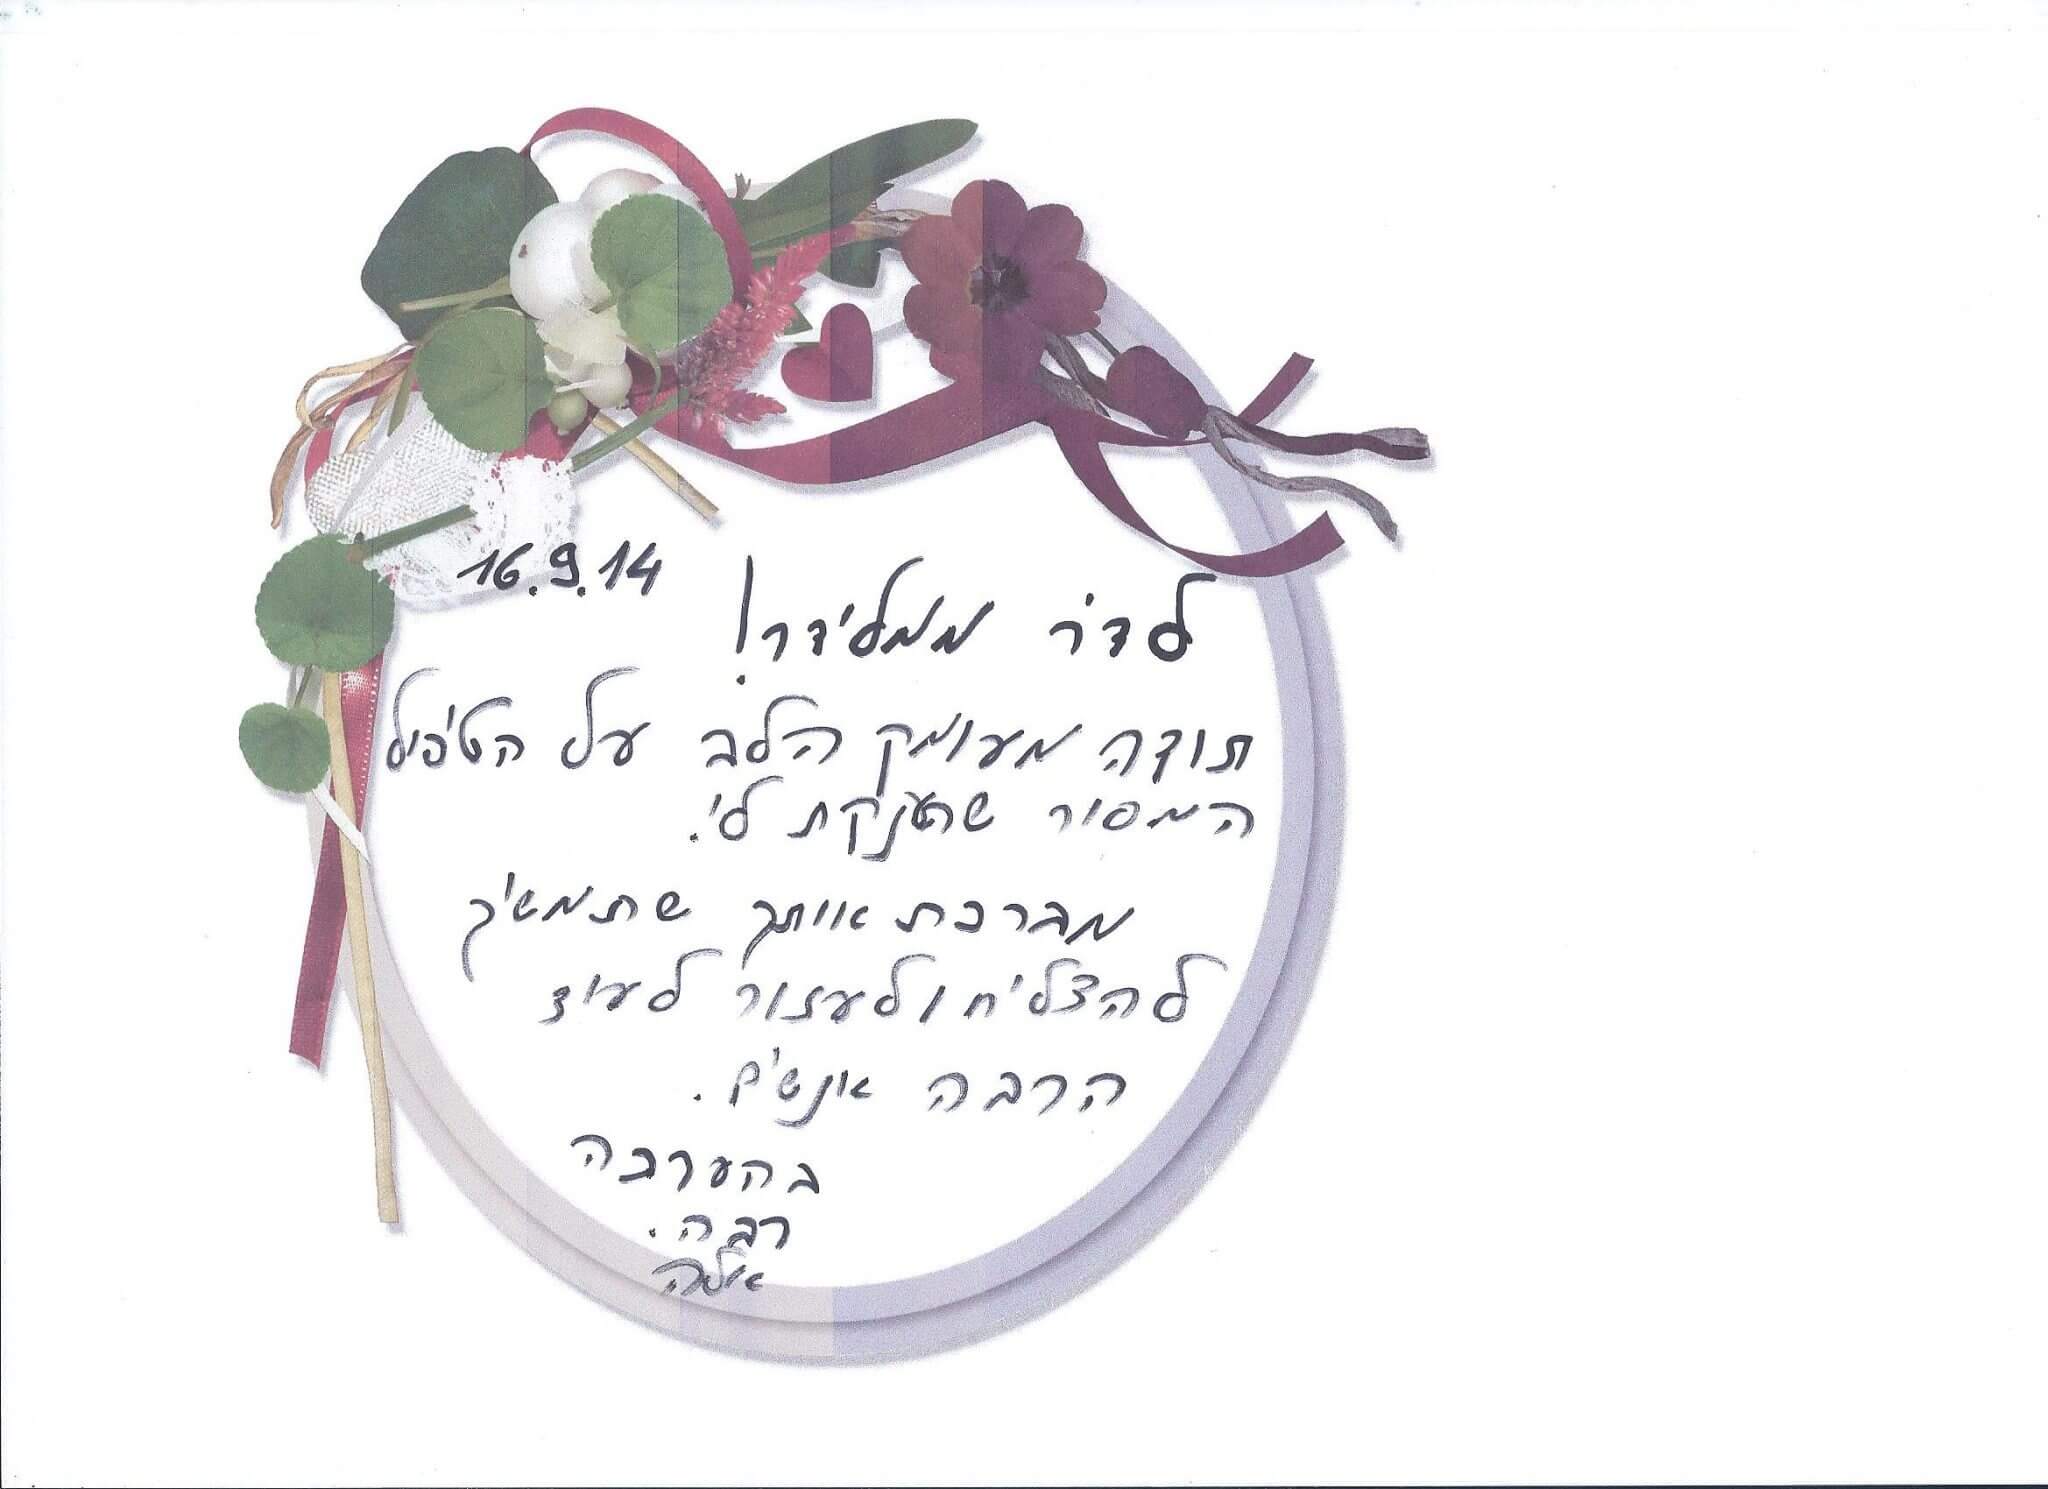 16.9.14
לד׳ר ממלידר!
תודה מעומק הלב על הטיפול
המסור שהענקת לי.
מברכת אותך שתמשיך
להצליח ולעזור לעוד
הרבה אנשים.
בהערכה
רבה.
אילה